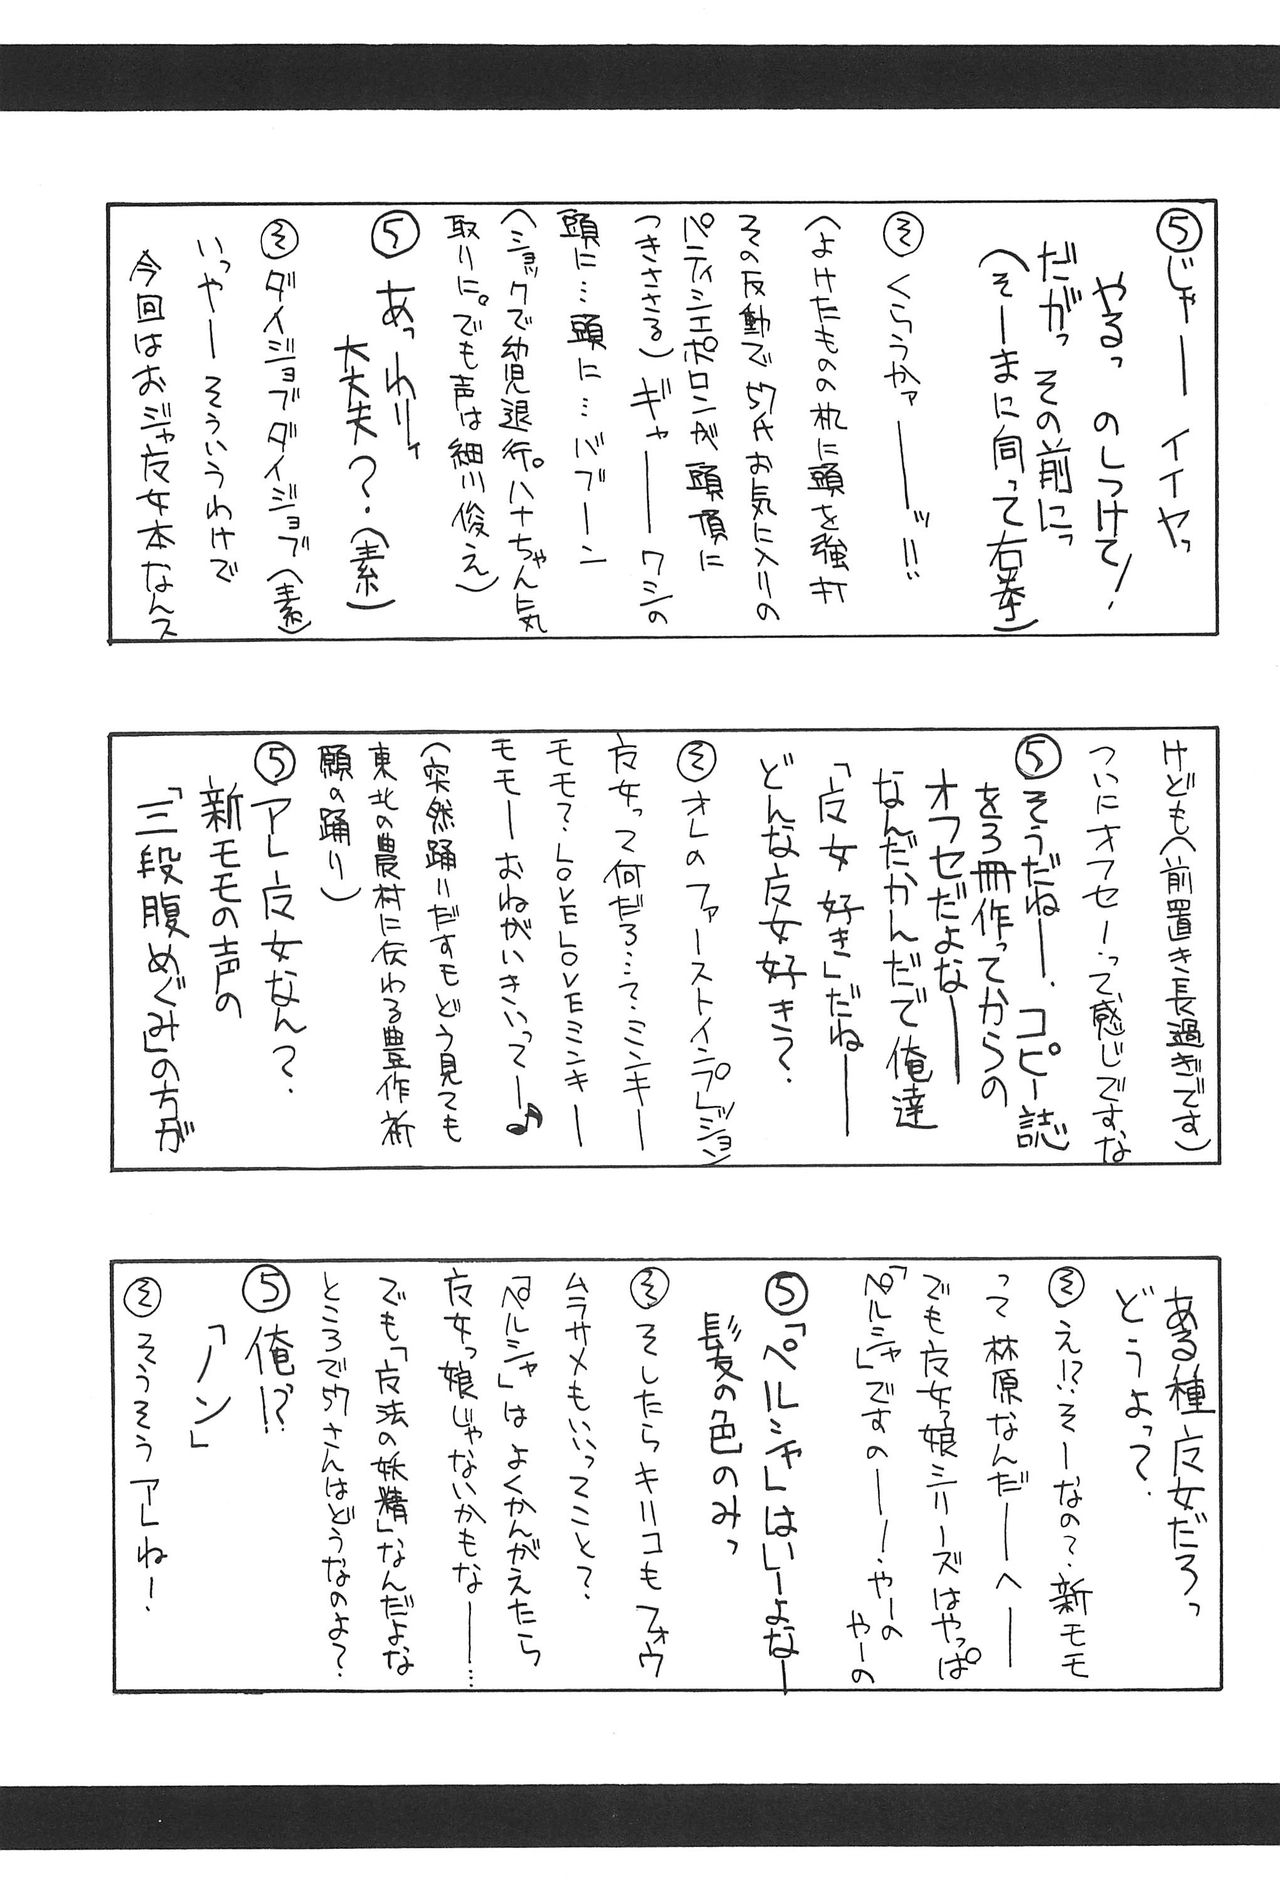 ⑤じゃー イイヤっ
やるっ のしつけて!
だがっ その前にっ
(そーまに向って右拳)
㋞くらうかァーーッ!!
(よけたものの机に頭を強打
その反動で57氏お気に入りの
パティシエポロンが頭頂に
つきささる)ギャーーワシの
頭に…頭に…バブーン
(ショックで幼児退行。ハナちゃん気
取りに。でも声は細川俊之)
⑤あっわりィ
大丈夫?.(素)
㋞ダイジョブダイジョブ(素)
いっやーそういうわけで
今回はおジャ広女本なんス
けども(前置き長過ぎです)
ついにオフセーって感じですな
⑤そうだねー.コピー誌
を3冊作ってからの
オフセだよなー
なんだかんだで俺達
「広女好き」だねー
どんな広女好き?.
㋞オレのファーストインプレッション
広女って何だろ…?.ミンキー
モモ?.LOVELOVEミンキー
モモーおねがいきいってー♪
(突然踊りだすもどう見ても
東北の農村に伝わる豊作祈
願の踊り)
⑤アレ広女なん?.
新モモの声の
「三段腹めぐみ」の方が
ある種広女だろっ
どうよっ?.
㋞え!?.そーなの?.新モモ
って林原なんだーへー
でも広女っ娘シリーズはやっぱ
「ペルシャ」ですのー!.やーの
やーの
⑤「ペルシャ」はいーよなー
髪の色のみっ
㋞そしたらキリコもフォウ
ムラサメもいいってこと?.
「ペルシャ」はよくかんがえたら
広女っ娘じゃないかもなー…
でも「広法の妖精」なんだよな
ところで57さんはどうなのよ?.
⑤俺!?
「ノン」
㋞そうそうアレねー.